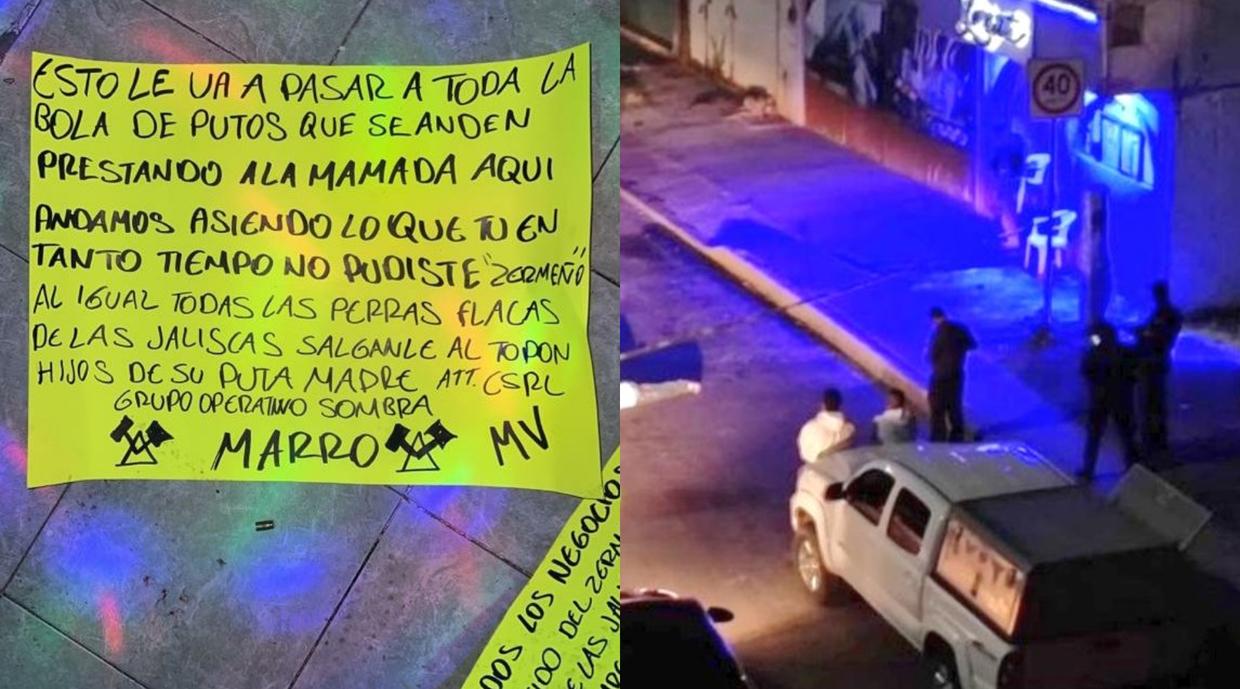 ESTO LE VA A PASAR A TODA LA
BOLA DE PUTOS QUE SE ANDEN
PRESTANDO A LA MAMADA AQUI
ANDAMOS ASIENDO LO QUE TU EN
TANTO TIEMPO NO PUDISTE "ZERMEÑO"
AL IGUAL TODAS LAS PERRAS FLACAS
DE LAS JALISCAS SALGANLE AL TOPON
HIJOS DE SU PUTA MADRE ATT. CSRL
GRUPO OPERATIVO SOMBRA
MARRO MV
DOS LOS NEGOCIO
DO DEL ZERM
E LAS JAL
40